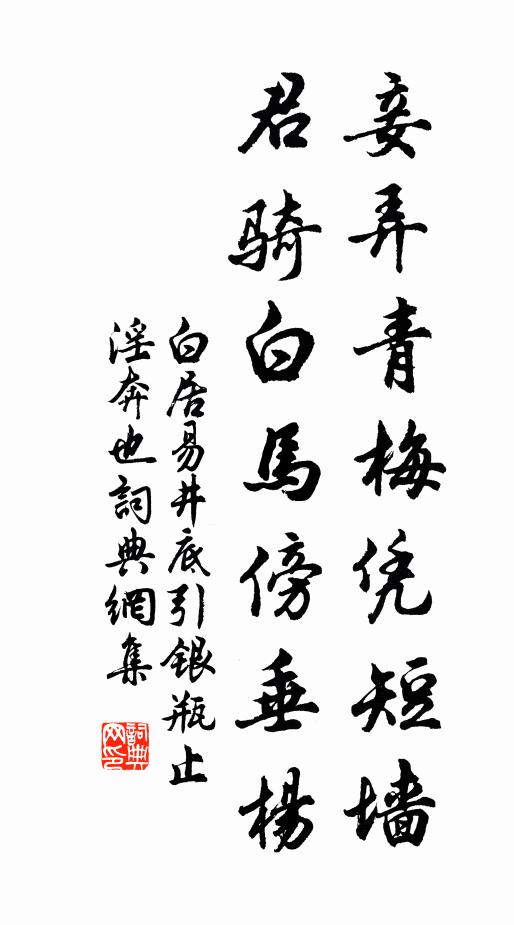 妾弄青梅凭短墙
君骑白馬傍垂楊
白居易井底引銀瓶止
淫奔也詞典網集
詞典网印